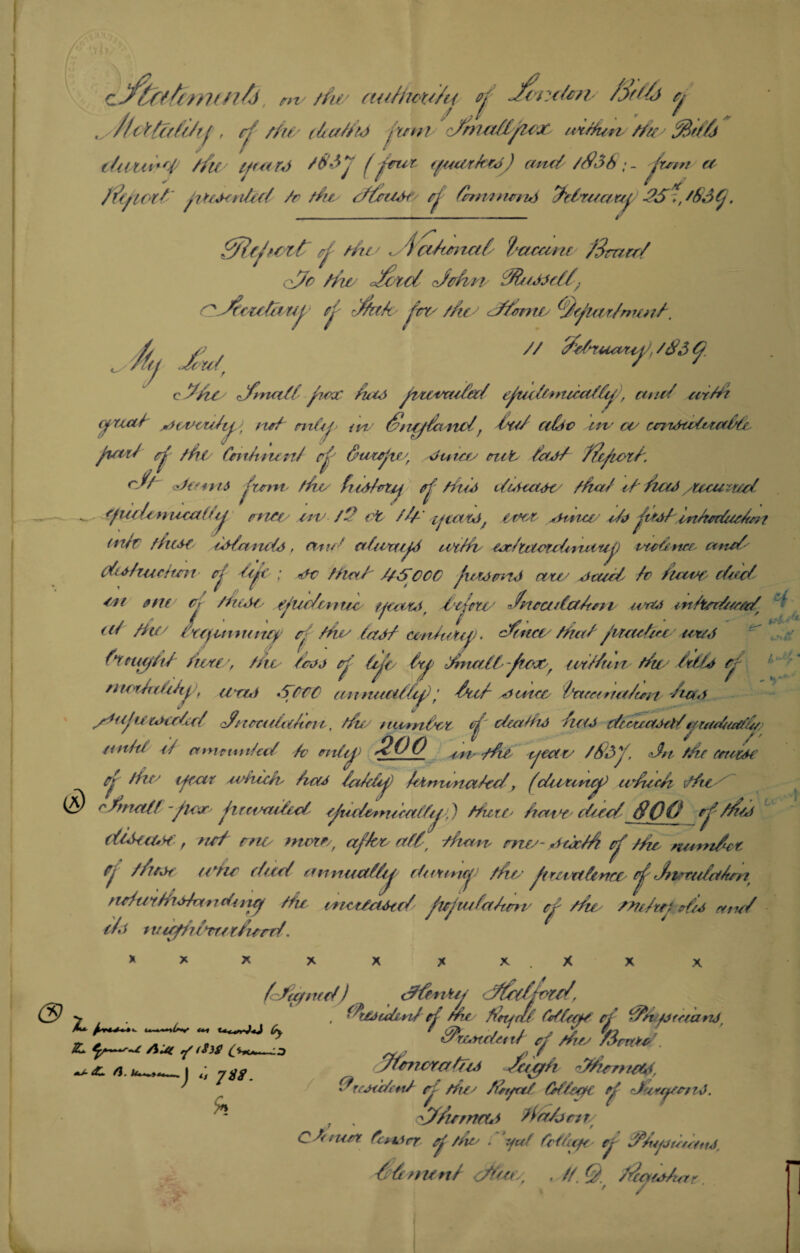 Statements, on the authority of London Bills of
Mortality, of the deaths from Smallpox within the Bills
during the years 1837 (four quarters) and 1838;- from a
Report presented to the House of Commons February 25th, 1839.
Report of the National Vaccine Board
To the Lord John Russell,
Secretary of State for the Home Department.
11 February, 1839
My Lord
The Small pox has prevailed epidemically, and with
great severity, not only in England, but also in a considerable
part of the Continent of Europe, since our last Report.
It seems from the history of this disease that it has recurred
epidemically once in 12 or 14 years, ever since its first introduction
into these islands, and always with extraordinary violence and
destruction of life; so that 45000 persons are said to have died
in one of these epidemic years, before Inoculation was introduced,
at the beginning of the last century. Since that practice was
brought here, the loss of life by Small-pox, within the bills of
mortality, was 5000 annually; but since Vaccination has
superseded Inoculation, the number of deaths has decreased gradually
until it amounted to only 200 in the year 1837. In the course
of the year which has lately terminated, (during which the
Small-pox prevailed epidemically,) there have died 800 of this
disease, not one more, after all, than one-sixth of the number
of those who died annually during the prevalence of Inoculation,
notwithstanding the increased population of the metropolis and
its neighbourhood.
x x x x x x x x x x
(Signed) Henry Halford,
President of the Royal College of Physicians,
President of the Board.
Honoratus Leigh Thomas,
President of the Royal College of Surgeons.
Thomas Watson
Senior Censor of the Royal College of Physicians.
Clement Hue, M.D. Registrar.
The precise number by
the Epidemic Bill of 1838
is 788.